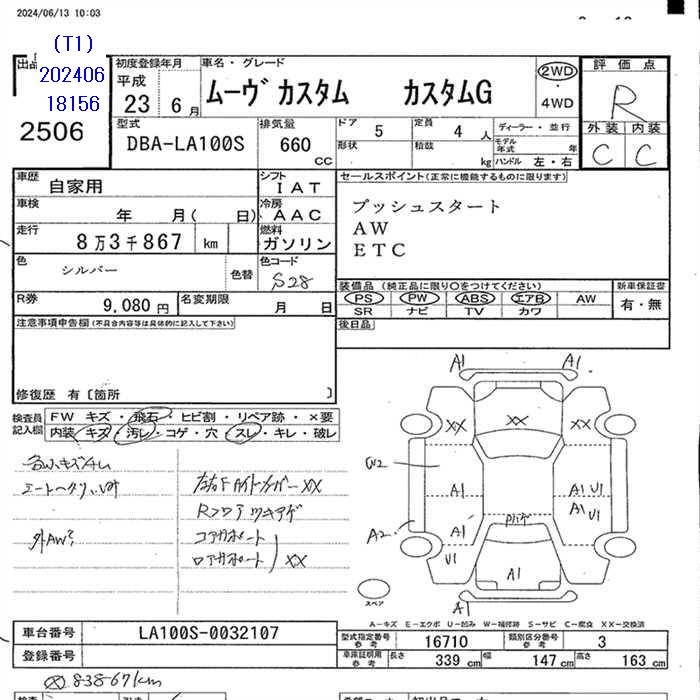 2024/06/13 10:03
(T1)
202406
18156
2506
初度登録年月
平成
23 6 月
車名・グレード
ムーヴ カスタム カスタムG
2WD
・
4WD
評価点
R
外装 内装
C C
型式
DBA-LA100S
排気量
660
CC
ドア 5
定員 4 人
形状
積数 kg
ディーラー・並行
モデル年式 年
ハンドル 左・右
車歴 自家用
シフト IAT
車検 年 月( 日)
冷房 AAC
走行 8万3千867 km
燃料 ガソリン
色 シルバー
色替
色コード S28
R券 9,080 円
名変期限 月 日
セールスポイント(正常に機能するものに限ります)
プッシュスタート
AW
ETC
装備品(純正品に限り○をつけてください)
新車保証書
PS PW ABS エアB AW
SR ナビ TV カワ
有・無
後日品
注意事項申告欄(不具合内容等は具体的に記入して下さい)
修復歴 有〔箇所 〕
検査員記入欄
FW キズ・飛石・ヒビ割・リペア跡・×要
内装・キズ・汚レ・コゲ・穴・スレ・キレ・破レ
外AW
XX
コアサポート
ロアサポート
XX
A1 A1
XX XX XX
W2
A1
A1 U1
A1 U1
A1
A2
U1
A1
A1
スペア
A-キズ E-エクボ U-凹み W-補修跡 S-サビ C-腐食 XX-交換済
車台番号 LA100S-0032107
登録番号
型式指定番号参考 16710
類別区分番号参考 3
車庫証明用参考
長さ 339 cm
幅 147 cm
高さ 163 cm
83867km